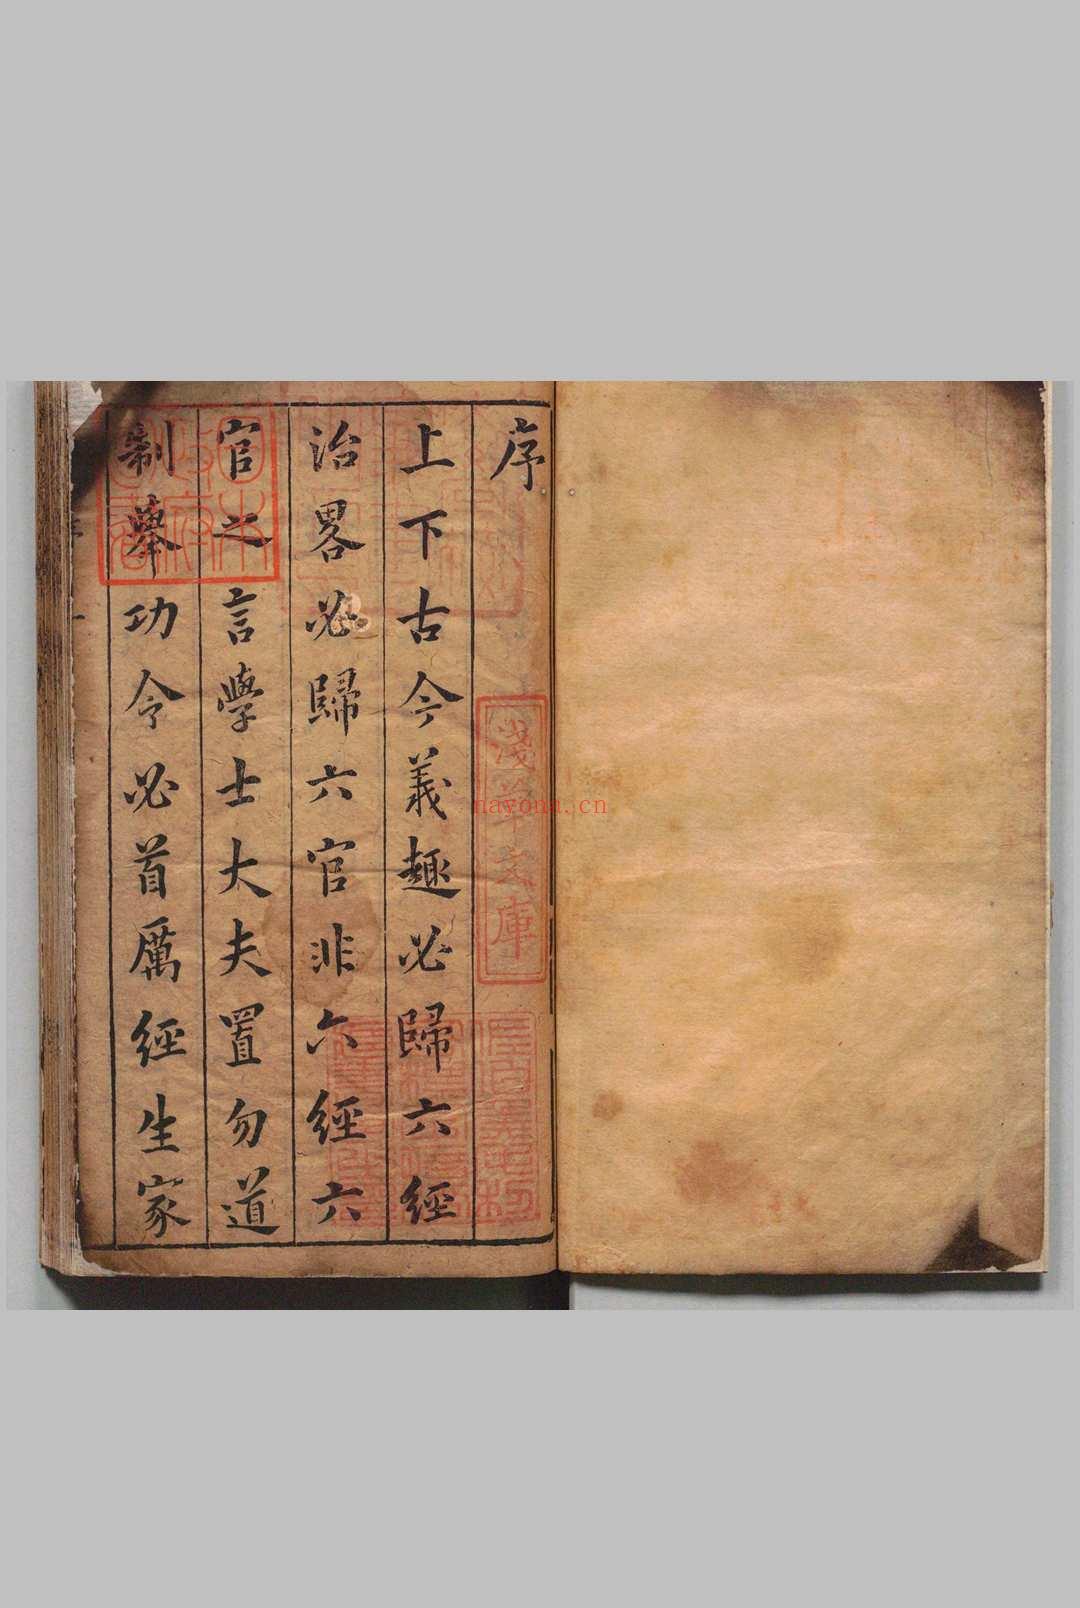 序
上下古今義趣必歸六經
治畧必歸六官非六經六
官之言學士大夫置勿道
制舉功令必首厲經生家
淺草文庫
日本政府圖書
nayona.cn